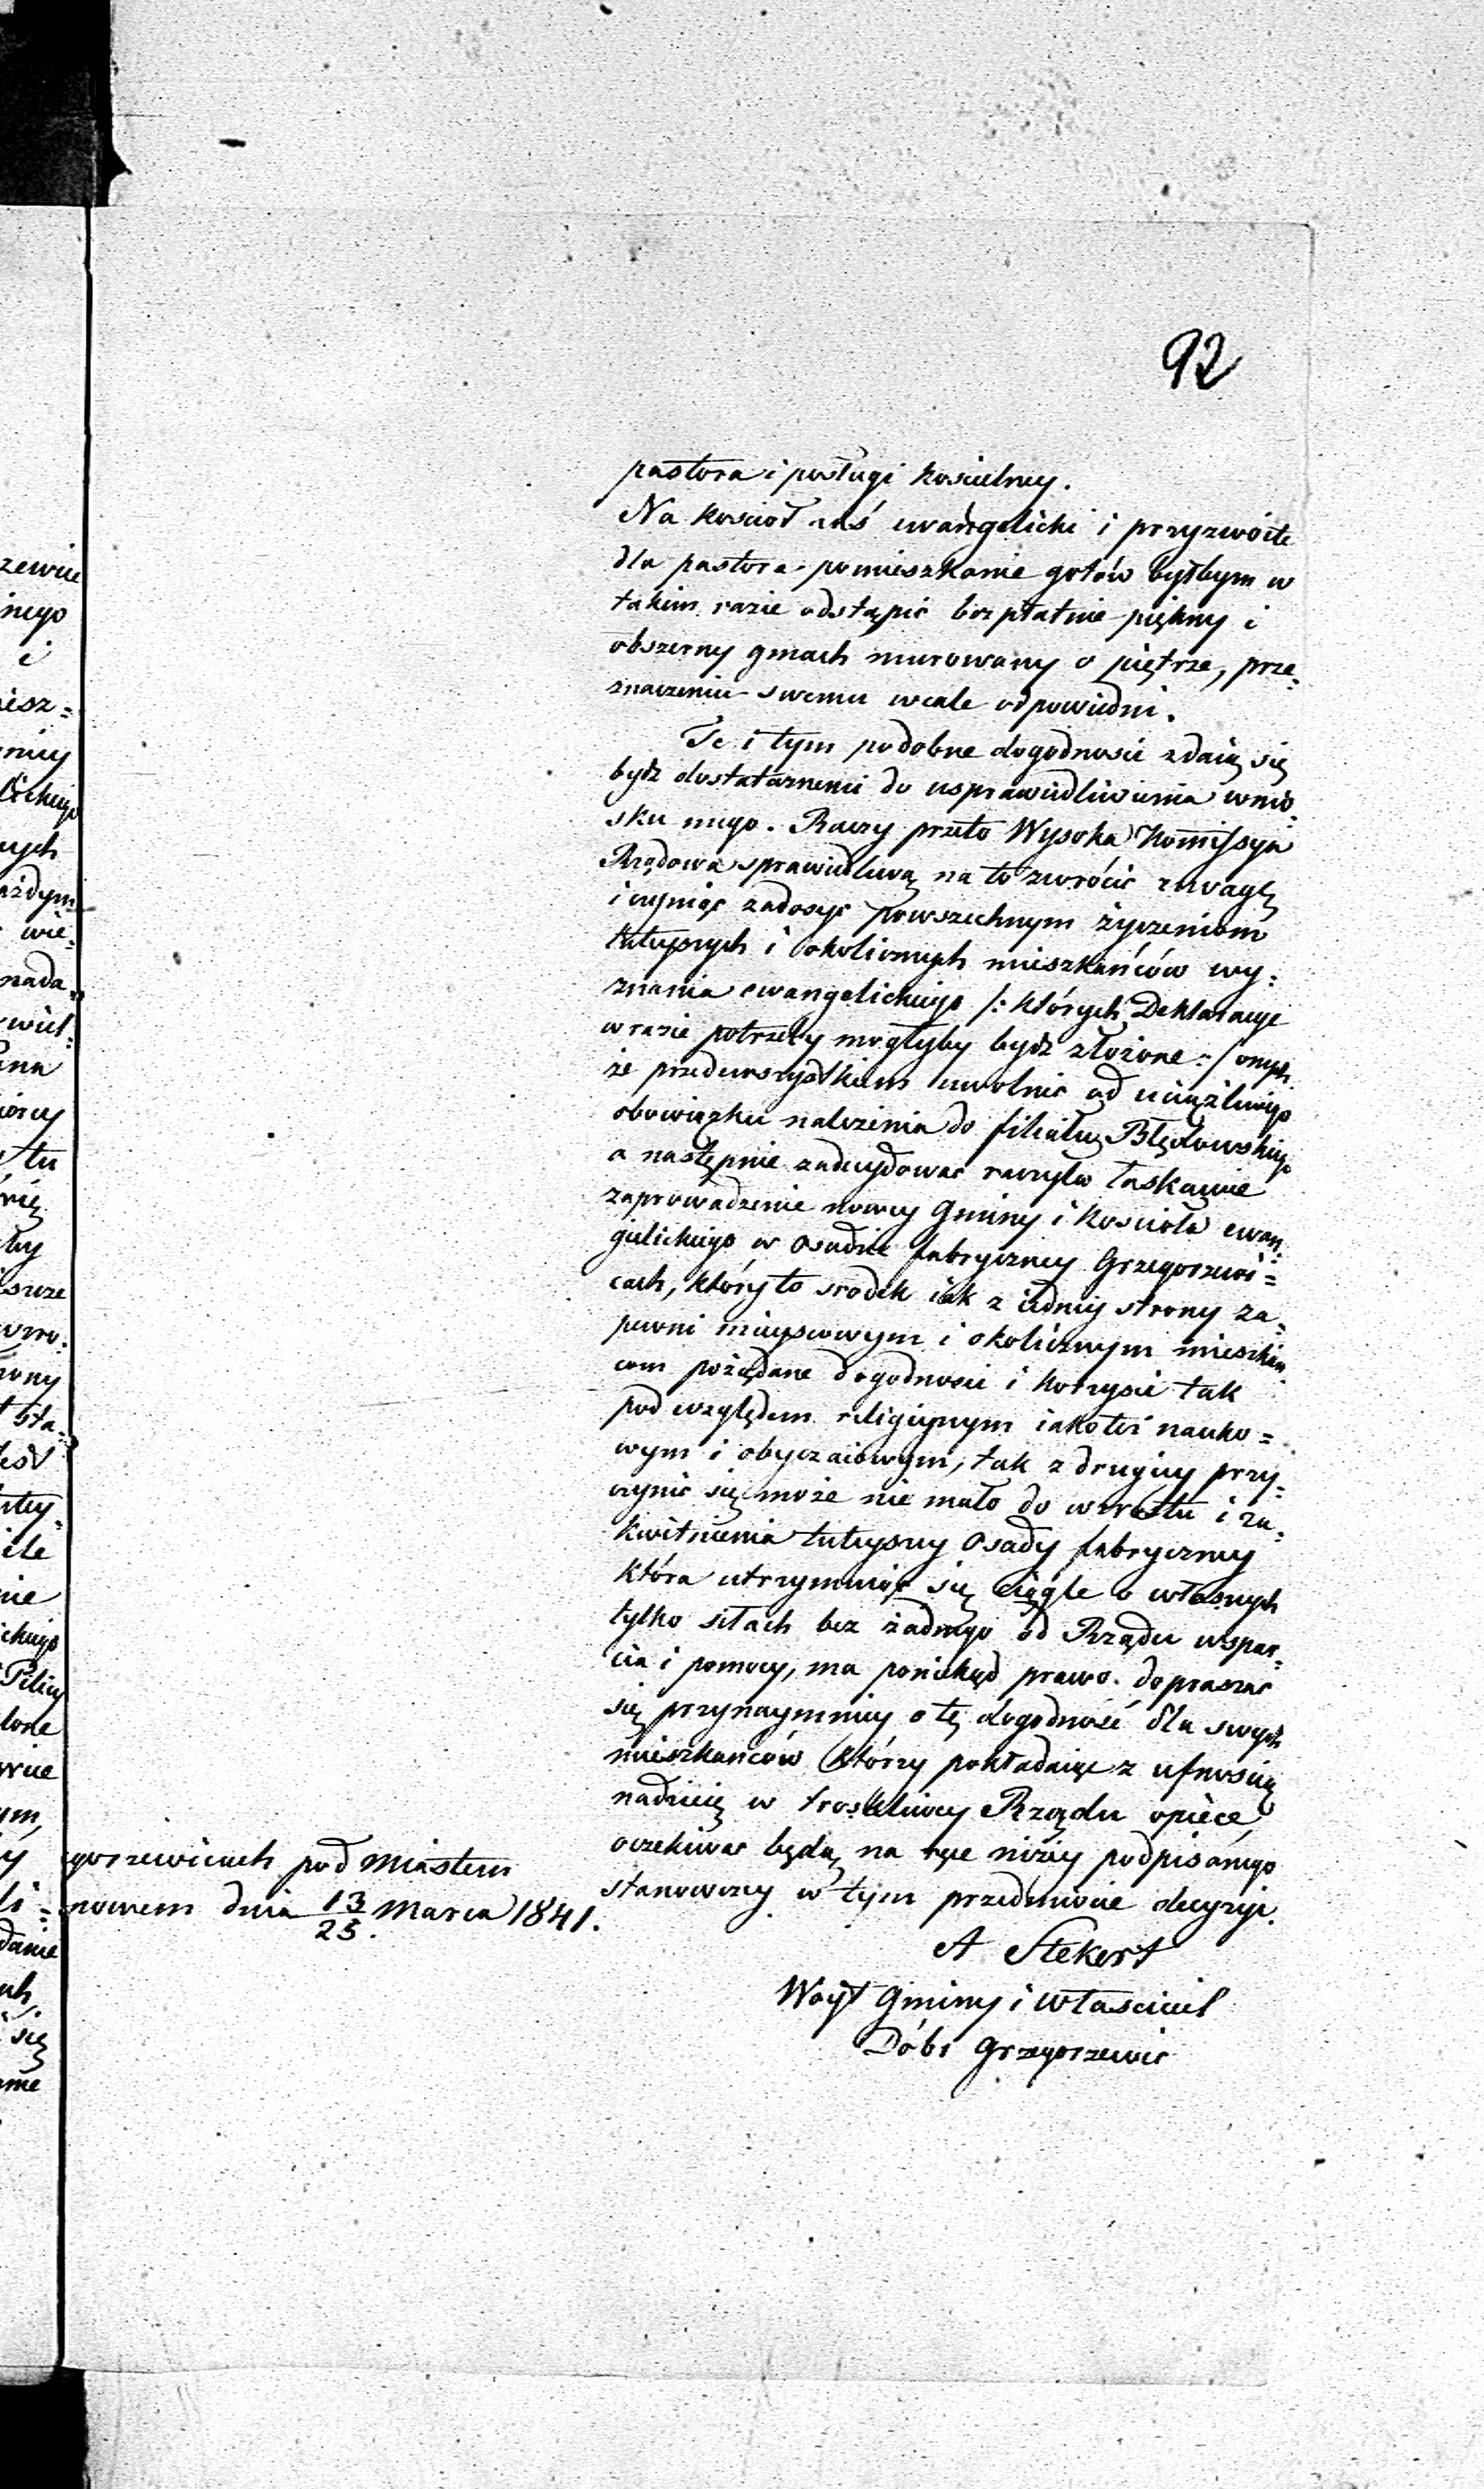 92
pastora i posługi kościelney.
Na kościoł zaś ewangelicki i przyzwoite
dla pastora pomieszkanie gotów byłbym w
takim razie odstąpić bezpłatnie piękny i
obszerny gmach murowany o piętrze, prze-
znaczeniu swemu wcale odpowiedni.
Te i tym podobne dogodności zdaią się
bydź dostatecznemi do usprawiedliwienia wnio-
sku mego. Raczy przeto Wysoka Kommissya
Rządowa sprawiedliwą na to zwrócić uwagę
i czyniąc zadosyć powszechnym życzeniom
tuteyszych i okolicznych mieszkańców wy-
znania ewangelickiego /: których Deklaracye
w razie potrzeby mogłyby bydź złożone :/ onych
że przedewszystkiem uwolnić od uciążliwego
obowiązku należenia do filiału Błędowskiego
a następnie zadecydować raczyła łaskawie
zaprowadzenie nowey Gminy i kościoła ewan-
gielickiego w osadzie fabryczney Grzegorzewi=
cach, który to srodek iak z iedney strony za-
pewni mieyscowym i okolicznym mieszkań-
com pożądane dogodności i korzyści tak
pod względem religiynym iakoteż nauko=
wym i obyczaiowym, tak z drugiey przy-
czynić się może nie mało do wzrostu i za-
kwitnienia tuteyszey Osady fabryczney
która utrzymuiąc się ciągle o własnych
tylko siłach bez żadnego od Rządu wspar-
cia i pomocy, ma poniekąd prawo dopraszać
się przynaymniey o tę dogodność dla swych
mieszkańców którzy pokładaiąc z ufnością
nadzieię w troskliwey Rządu opiece,
oczekiwać będą na ręce niżey podpisanego
stanowczey w tym przedmiocie decyzyi.
gorzewicach pod Miastem
nowem dnia 13/25. Marca 1841.
A Stekert
Woyt Gminy i Własciciel
Dóbr Grzegorzewic